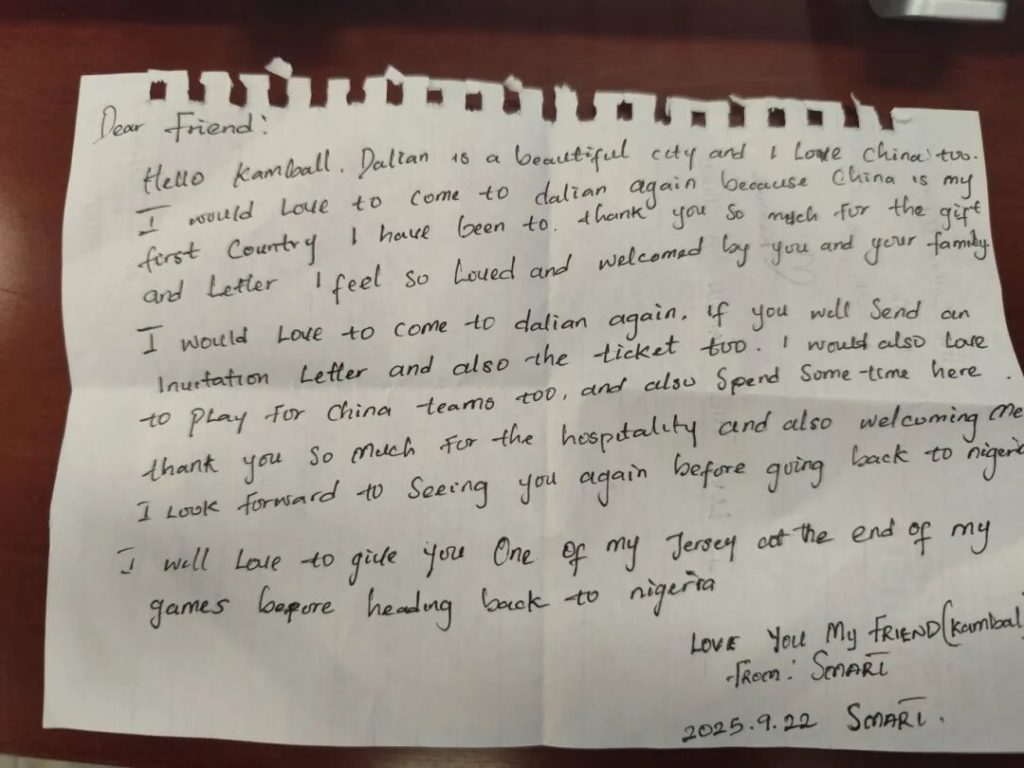 Dear Friend:
Hello Kamball. Dalian is a beautiful city and I Love China too.
I would Love to come to dalian again because China is my
first Country I have been to. thank you so much for the gift
and Letter I feel so Loved and welcomed by you and your family
I would Love to come to dalian again, if you will Send an
Invitation Letter and also the ticket too. I would also Love
to play for China teams too, and also Spend Some time here.
thank you so much for the hospitality and also welcoming me
I Look forward to Seeing you again before going back to nigeria
I will Love to give you One of my Jersey at the end of my
games before heading back to nigeria
LOVE YOU MY FRIEND (Kambal
FROM: SMART
2025.9.22 SMART.